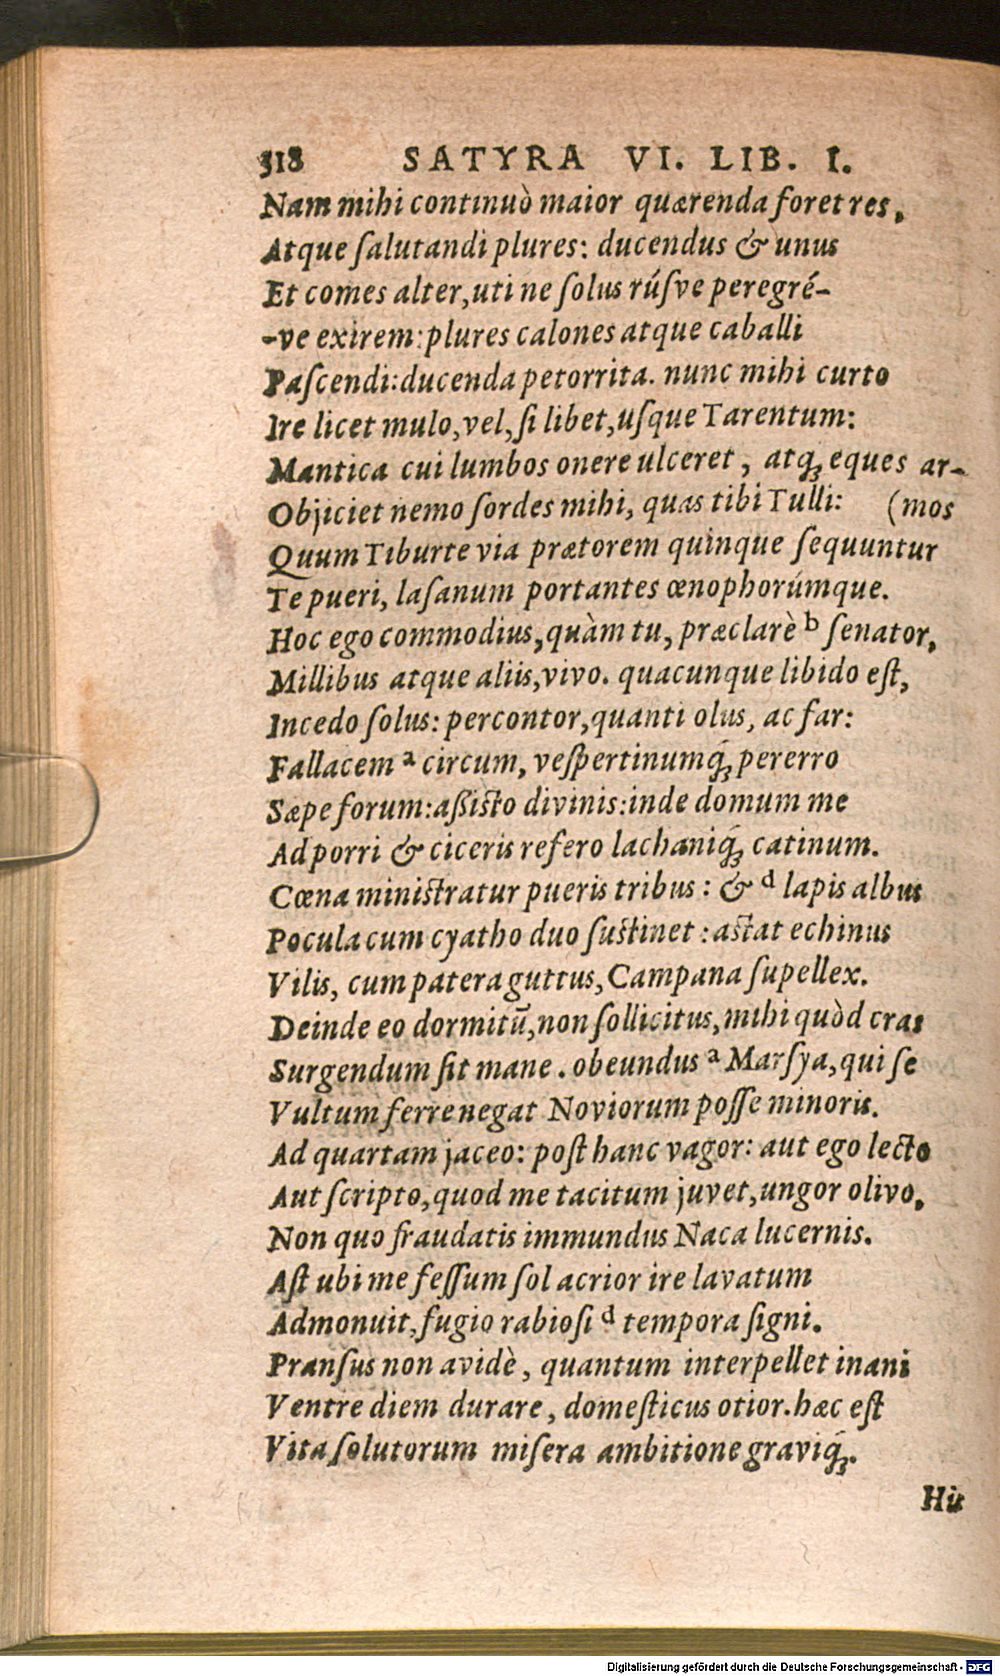 318 SATYRA VI. LIB. I.
Nam mihi continuò maior quærenda foret res,
Atque ſalutandi plures: ducendus & unus
Et comes alter, uti ne ſolus rúſve peregré-
-ve exirem: plures calones atque caballi
Paſcendi: ducenda petorrita. nunc mihi curto
Ire licet mulo, vel, ſi libet, uſque Tarentum:
Mantica cui lumbos onere ulceret, atq́; eques ar-
Objiciet nemo ſordes mihi, quas tibi Tulli: (mos
Quum Tiburte via prætorem quinque ſequuntur
Te pueri, laſanum portantes œnophorúmque.
Hoc ego commodius, quàm tu, præclarè b ſenator,
Millibus atque aliis, vivo. quacunque libido eſt,
Incedo ſolus: percontor, quanti olus, ac far:
Fallacem a circum, veſpertinumq́; pererro
Sæpe forum: aßiſto divinis: inde domum me
Ad porri & ciceris refero lachaniq́; catinum.
Cœna miniſtratur pueris tribus: & d lapis albus
Pocula cum cyatho duo ſuſtinet: aſtat echinus
Vilis, cum patera guttus, Campana ſupellex.
Deinde eo dormitū, non ſollicitus, mihi quòd cras
Surgendum ſit mane. obeundus a Marſya, qui ſe
Vultum ferre negat Noviorum poſſe minoris.
Ad quartam jaceo: poſt hanc vagor: aut ego lecto
Aut ſcripto, quod me tacitum juvet, ungor olivo,
Non quo fraudatis immundus Naca lucernis.
Aſt ubi me feſſum ſol acrior ire lavatum
Admonuit, fugio rabioſi d tempora ſigni.
Pranſus non avidè, quantum interpellet inani
Ventre diem durare, domeſticus otior. hæc eſt
Vita ſolutorum miſera ambitione graviq́;.
His
Digitalisierung gefördert durch die Deutsche Forschungsgemeinschaft - DFG